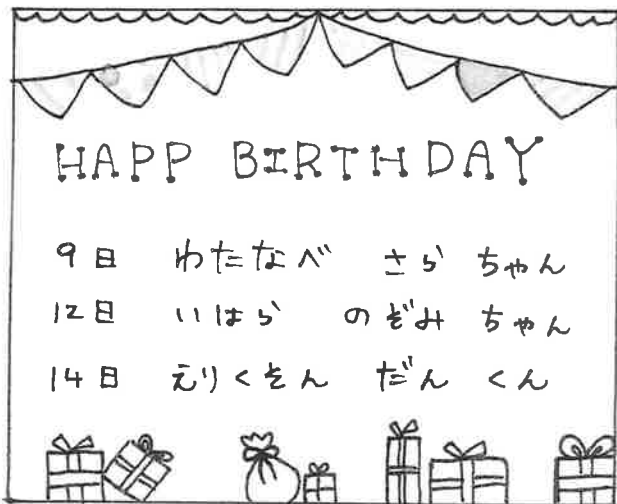 HAPP BIRTHDAY
9日 わたなべ さら ちゃん
12日 いはら のぞみ ちゃん
14日 えりくそん だん くん